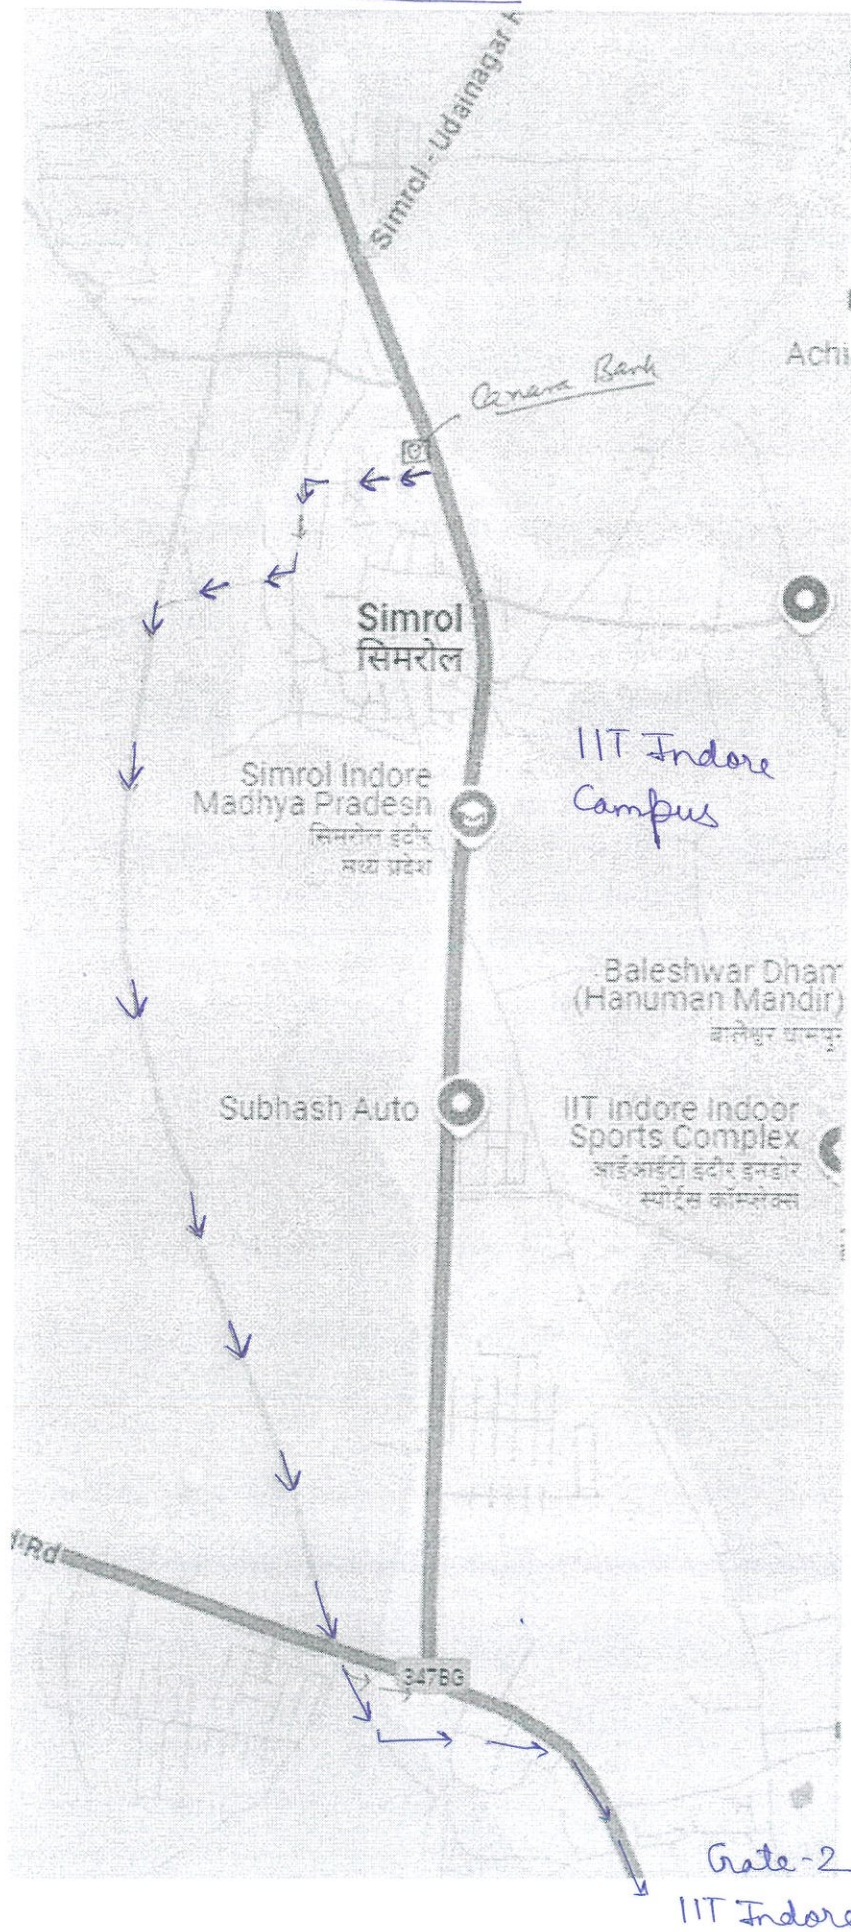 Simrol - Udainagar R
Achi
Canara Bank
Simrol
सिमरोल
IIT Indore
Campus
Simrol Indore
Madhya Pradesh
सिमरोल इंदौर
मध्य प्रदेश
Baleshwar Dham
(Hanuman Mandir)
Subhash Auto
IIT Indore Indoor
Sports Complex
आईआईटी इंदौर इनडोर
स्पोर्ट्स कॉम्प्लेक्स
Rd
347BG
Gate-2
IIT Indore